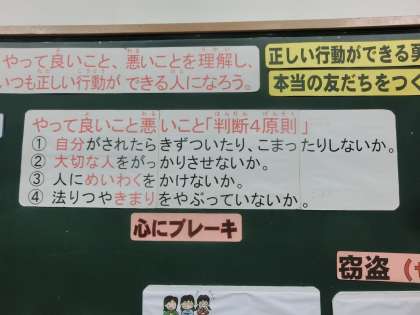 やって良いこと、悪いことを理解し、
いつも正しい行動ができる人になろう。
正しい行動ができる
本当の友だちをつく
やって良いこと悪いこと「判断4原則」
① 自分がされたらきずついたり、こまったりしないか。
② 大切な人をがっかりさせないか。
③ 人にめいわくをかけないか。
④ 法りつやきまりをやぶっていないか。
心にブレーキ
窃盗